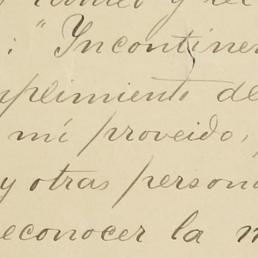 y rec
: "Incontinen
plimiento de
mi proveido,
y otras person
econocer la m